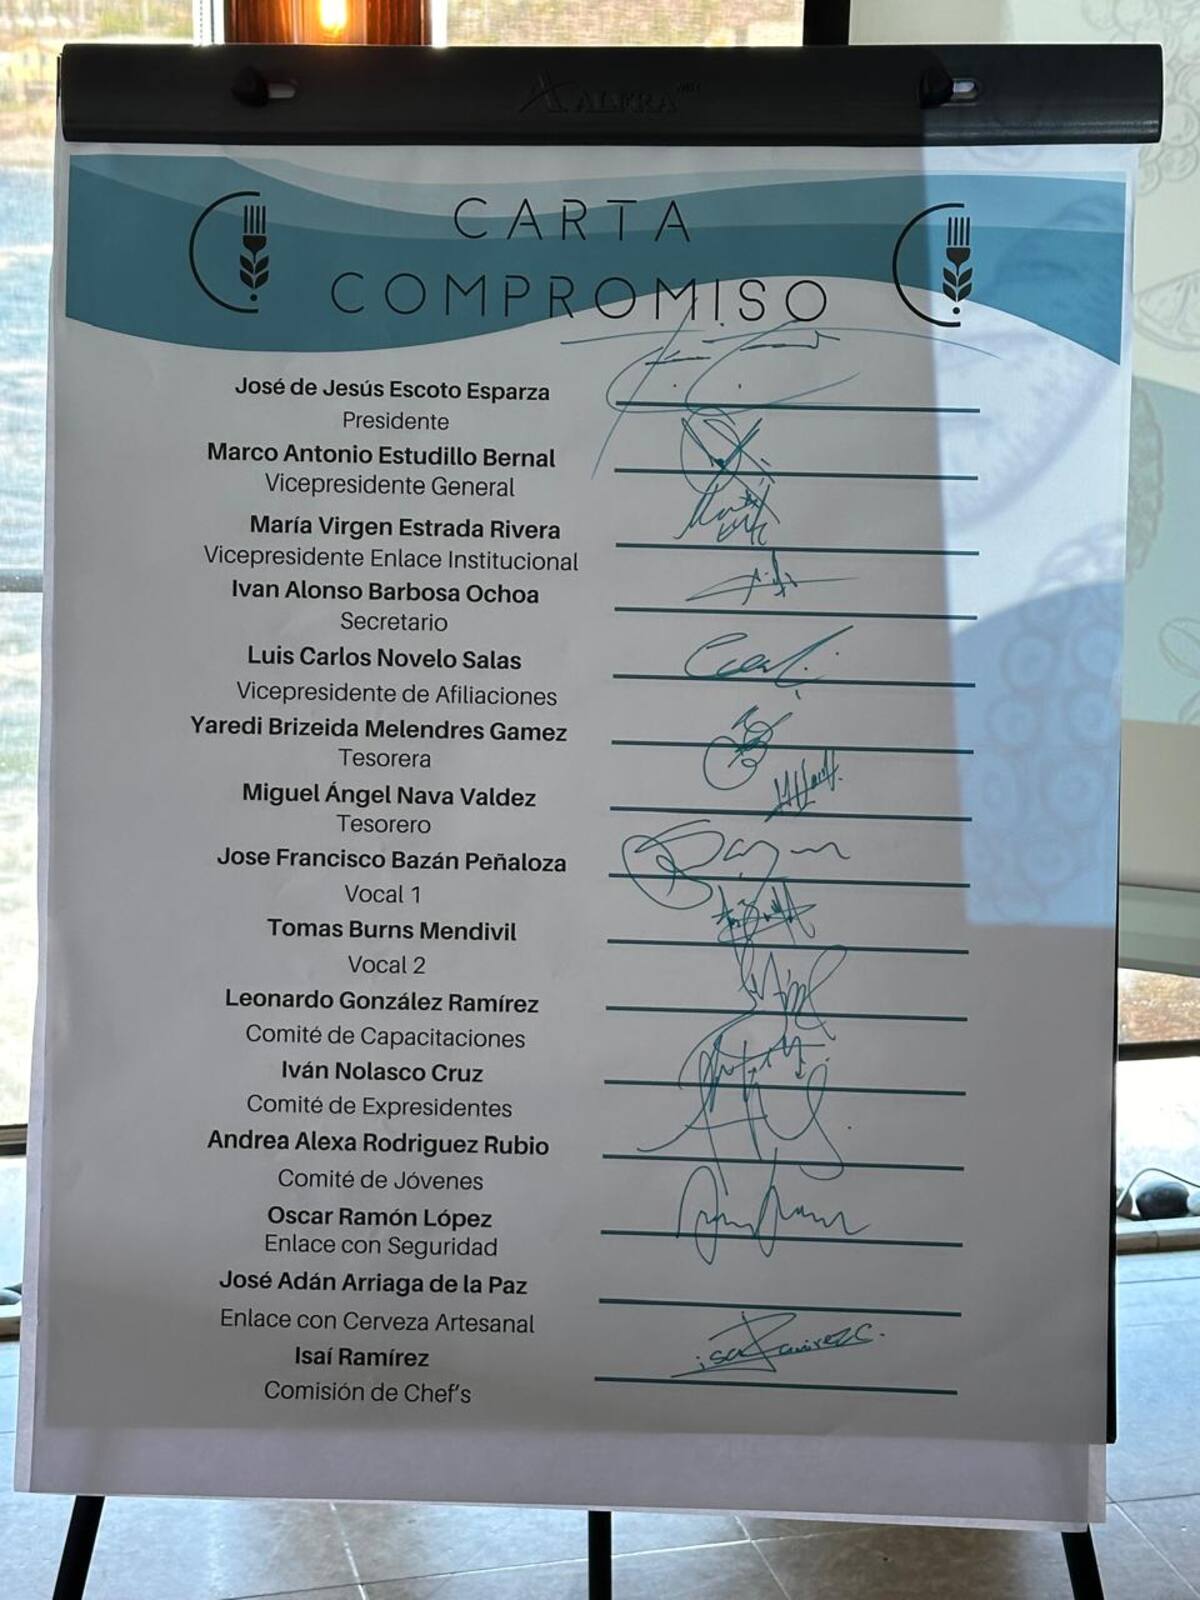 ALFRA
CARTA
COMPROMISO
José de Jesús Escoto Esparza
Presidente
Marco Antonio Estudillo Bernal
Vicepresidente General
María Virgen Estrada Rivera
Vicepresidente Enlace Institucional
Ivan Alonso Barbosa Ochoa
Secretario
Luis Carlos Novelo Salas
Vicepresidente de Afiliaciones
Yaredi Brizeida Melendres Gamez
Tesorera
Miguel Ángel Nava Valdez
Tesorero
Jose Francisco Bazán Peñaloza
Vocal 1
Tomas Burns Mendivil
Vocal 2
Leonardo González Ramírez
Comité de Capacitaciones
Iván Nolasco Cruz
Comité de Expresidentes
Andrea Alexa Rodriguez Rubio
Comité de Jóvenes
Oscar Ramón López
Enlace con Seguridad
José Adán Arriaga de la Paz
Enlace con Cerveza Artesanal
Isaí Ramírez
Comisión de Chef's